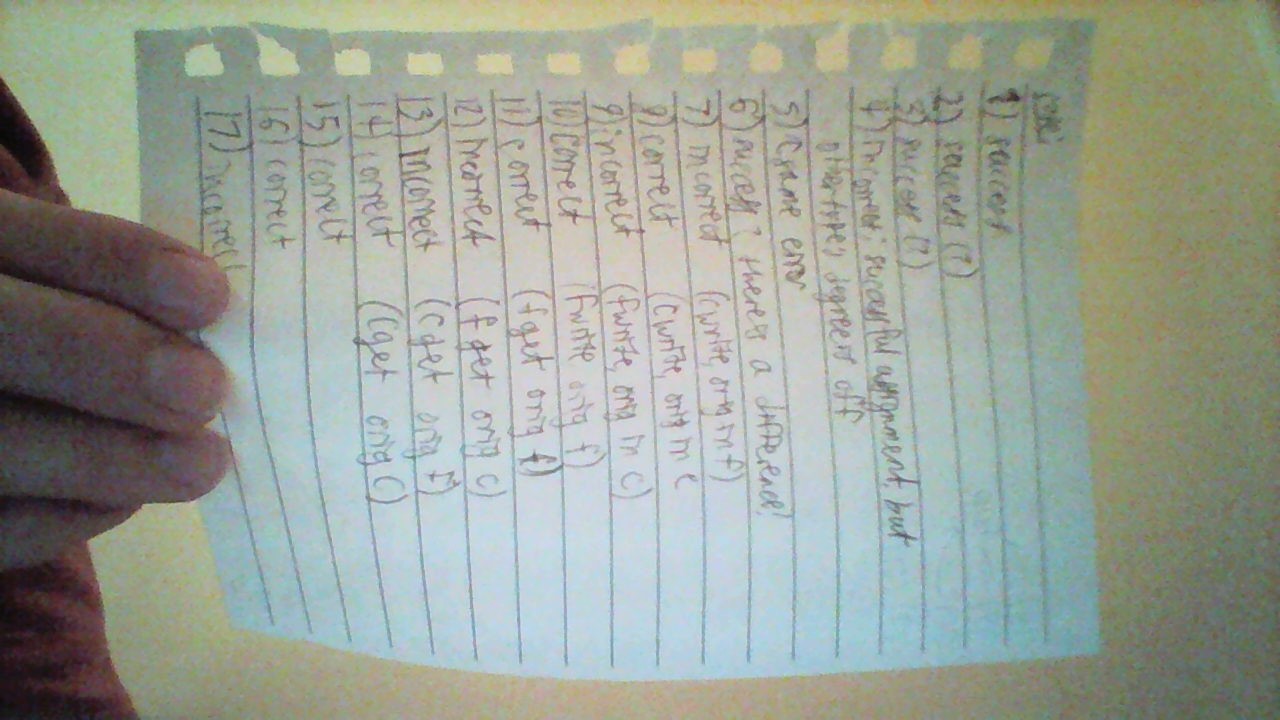 1) success
2) success (?)
3) success (?)
4) incorrect: successful assignment but
5) Crame error
6) success? there's a difference!
7) incorrect (cwrite, orig in f)
8) correct (cwrite, orig in c
9) incorrect (fwrite, orig in c)
10) correct (fwrite orig f)
11) correct (fget orig f)
12) incorrect (fget orig c)
13) incorrect (cget orig f)
14) correct (cget orig c)
15) correct
16) correct
17) incorrect